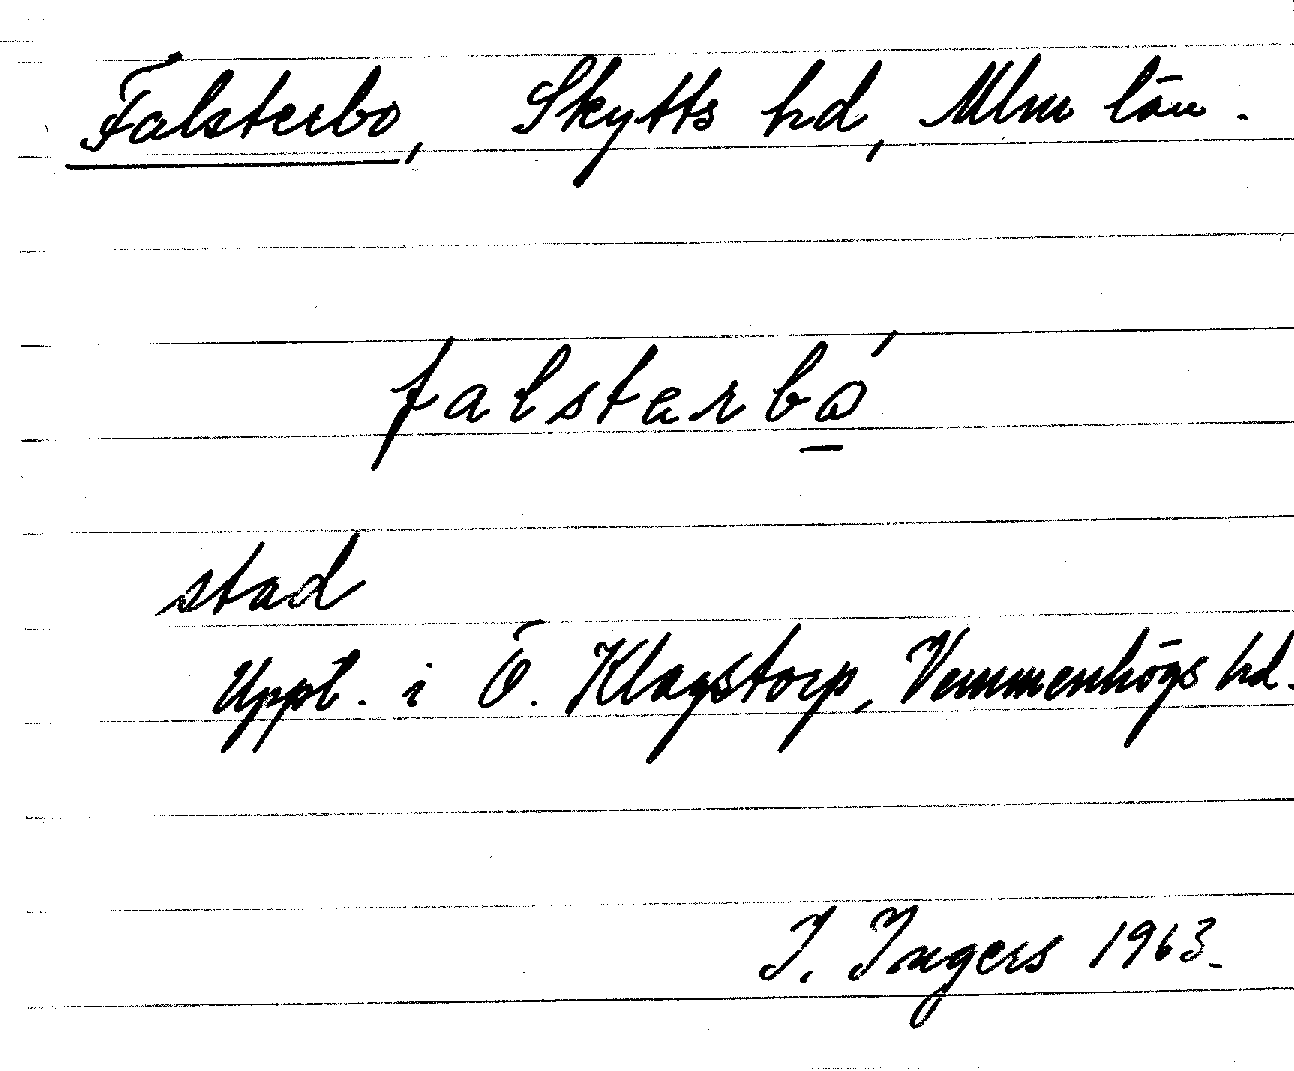 Falsterbo, Skytts hd, Mlm län.
falstarbó̱
stad
Uppt. i Ö. Klagstorp, Vemmenhögs hd.
I. Ingers 1963.